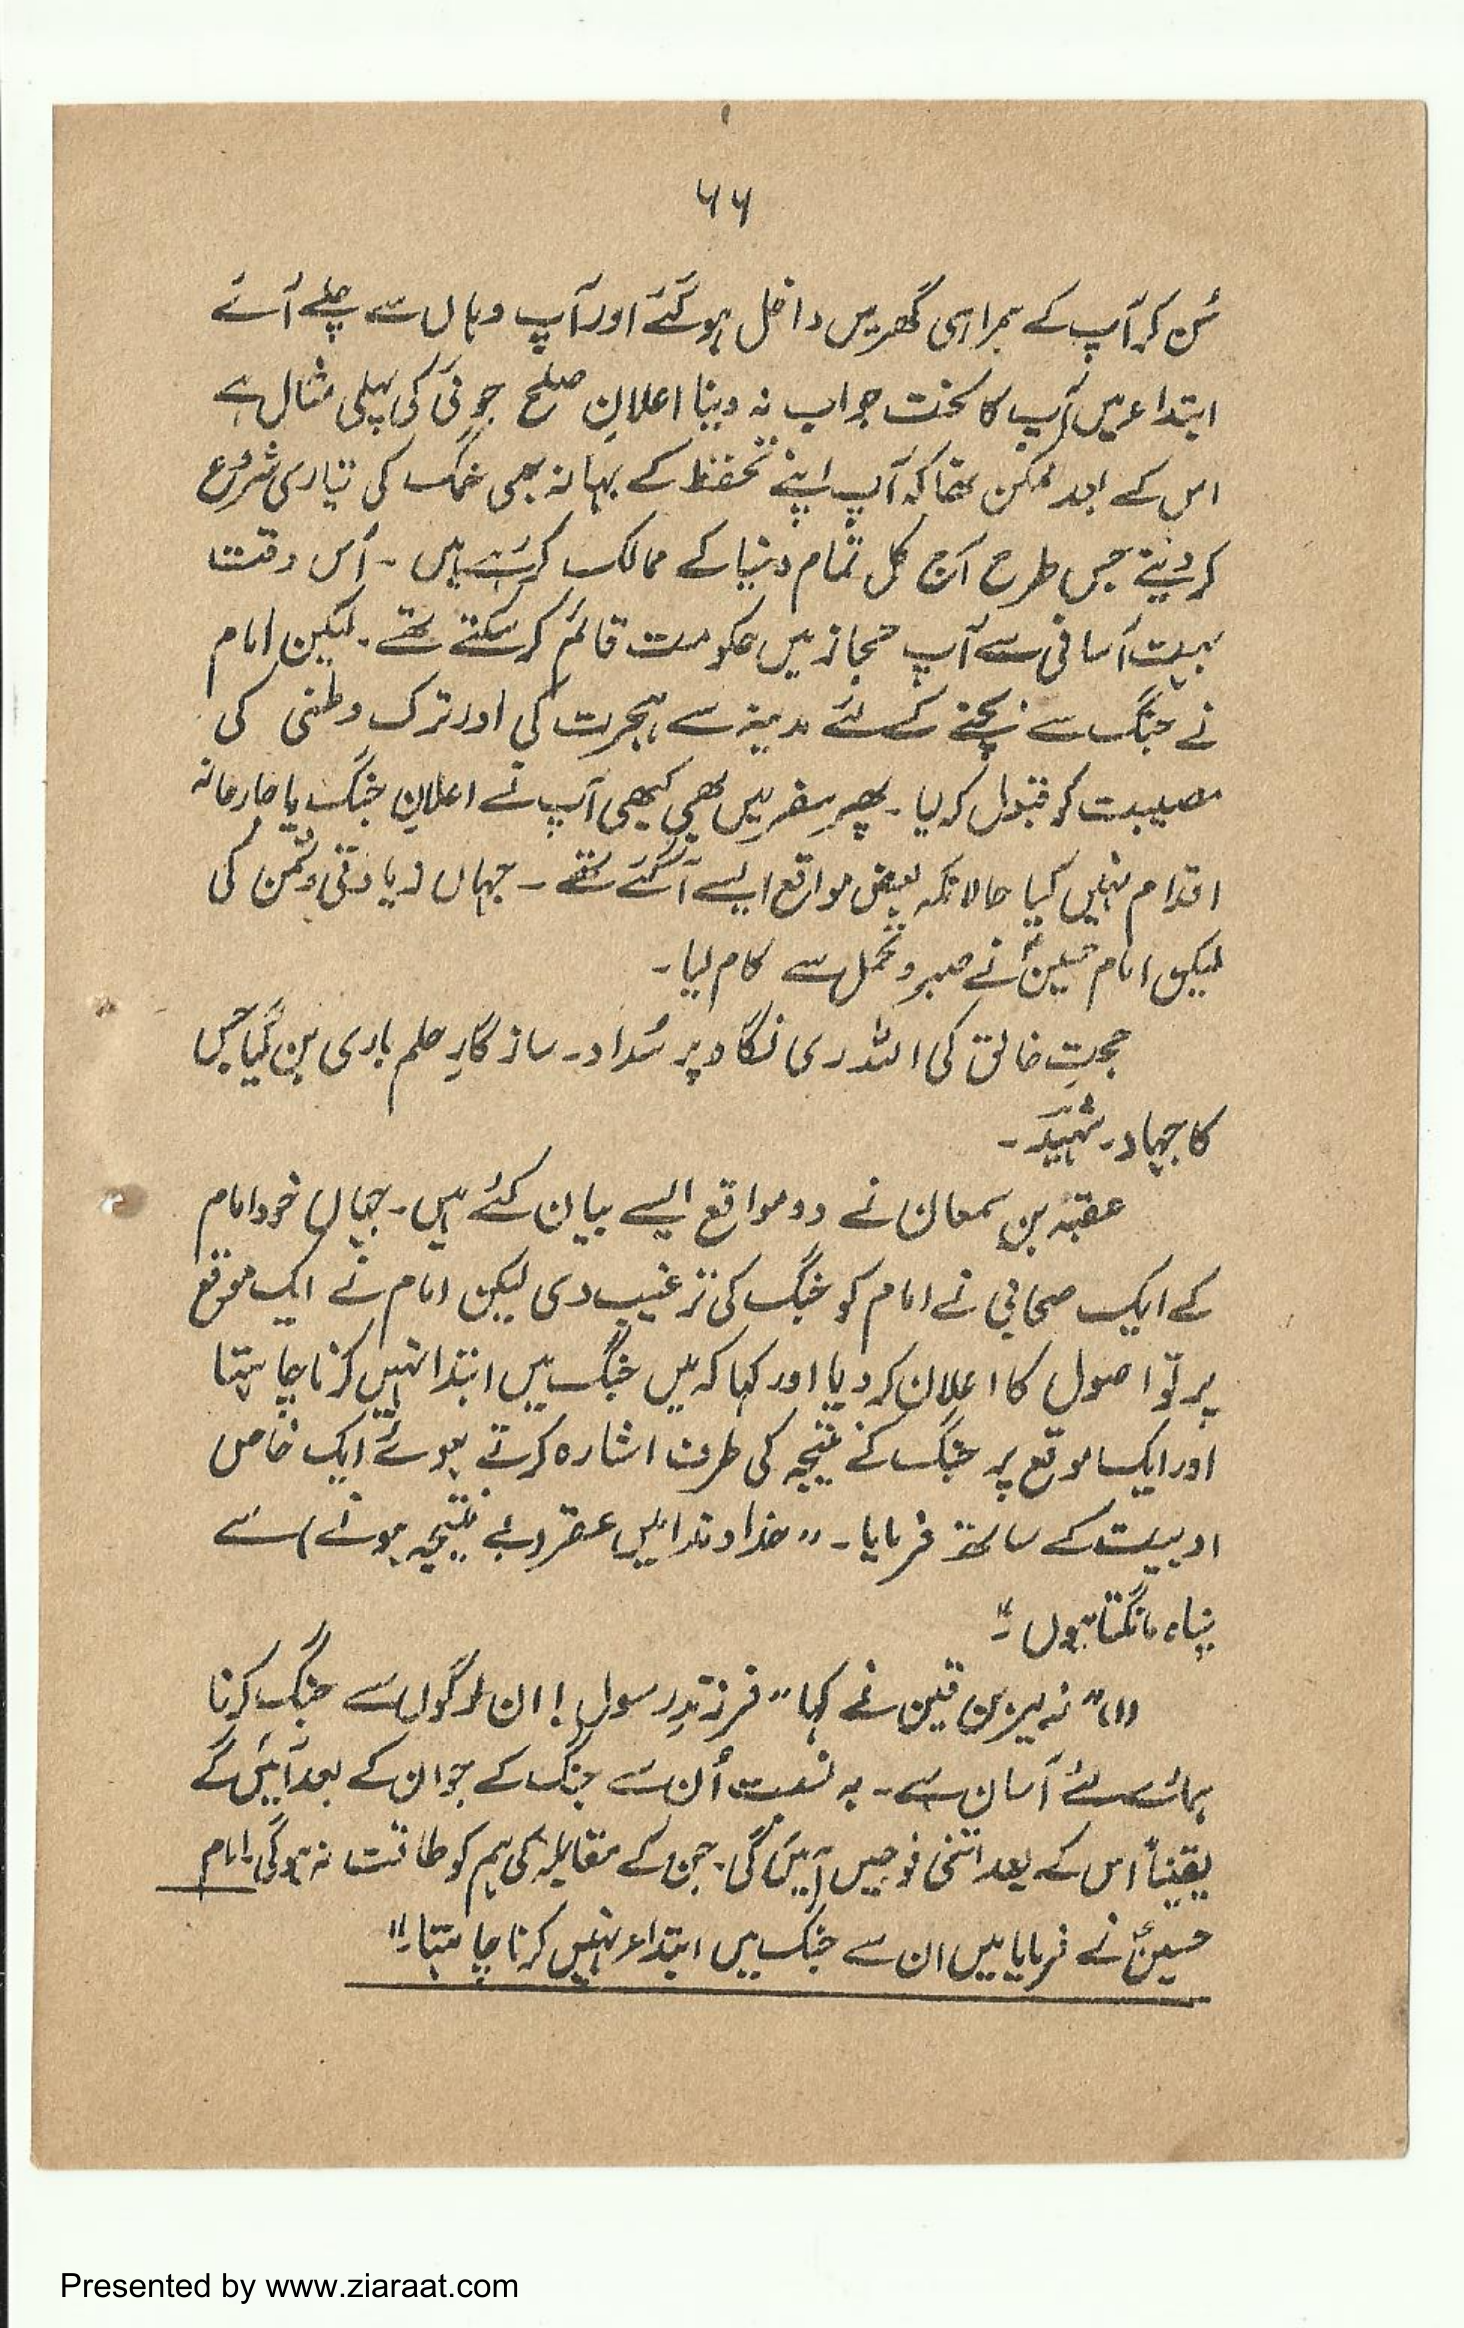 ۶۶
سُن کر آپ کے ہمراہی گھر میں داخل ہو گئے اور آپ وہاں سے چلے آئے
ابتداء میں آپ کا سخت جواب نہ دینا اعلانِ صلح جوئی کی پہلی مثال ہے
اس کے بعد ممکن تھا کہ آپ اپنے تحفظ کے بہانہ ہی جنگ کی تیاری شروع
کر دیتے جس طرح آج کل تمام دنیا کے ممالک کر رہے ہیں ۔ اُس وقت
بہت آسانی سے آپ حجاز میں حکومت قائم کر سکتے تھے ۔ لیکن امام
نے جنگ سے بچنے کے لئے مدینہ سے ہجرت کی اور ترک وطنی کی
مصیبت کو قبول کر لیا ۔ پھر سفر میں بھی کبھی آپ نے اعلانِ جنگ یا جارحانہ
اقدام نہیں کیا حالانکہ بعض مواقع ایسے آ گئے تھے ۔ جہاں زیادتی دشمن کی
لیکن امام حسینؑ نے صبر و تحمل سے کام لیا ۔
حجتِ خالق کی اللہ ری نگاہ پر سُداد ۔ سازگارِ حلم باری بن گیا جس
کا جہاد ۔ شہیدؔ ۔
عقبہ بن سمعان نے دو مواقع ایسے بیان کئے ہیں ۔ جہاں خود امام
کے ایک صحابی نے امام کو جنگ کی ترغیب دی لیکن امام نے ایک موقع
پر تو اصول کا اعلان کر دیا اور کہا کہ میں جنگ میں ابتدا نہیں کرنا چاہتا
اور ایک موقع پر جنگ کے نتیجہ کی طرف اشارہ کرتے ہوئے ایک خاص
ادبیت کے ساتھ فرمایا ۔ " خداوندا میں عقر (بے نتیجہ ہونے) سے
پناہ مانگتا ہوں ۔"
(۱)" زہیر بن قین نے کہا " فرزندِ رسول ! ان لوگوں سے جنگ کرنا
ہمارے لئے آسان ہے ۔ بہ نسبت اُن سے جنگ کے جو ان کے بعد آئیں گے
یقیناً اس کے بعد اتنی فوجیں آئیں گی ۔ جن کے مقابلہ کی ہم کو طاقت نہ ہوگی ۔ امام
حسینؑ نے فرمایا میں ان سے جنگ میں ابتداء نہیں کرنا چاہتا ۔"
Presented by www.ziaraat.com